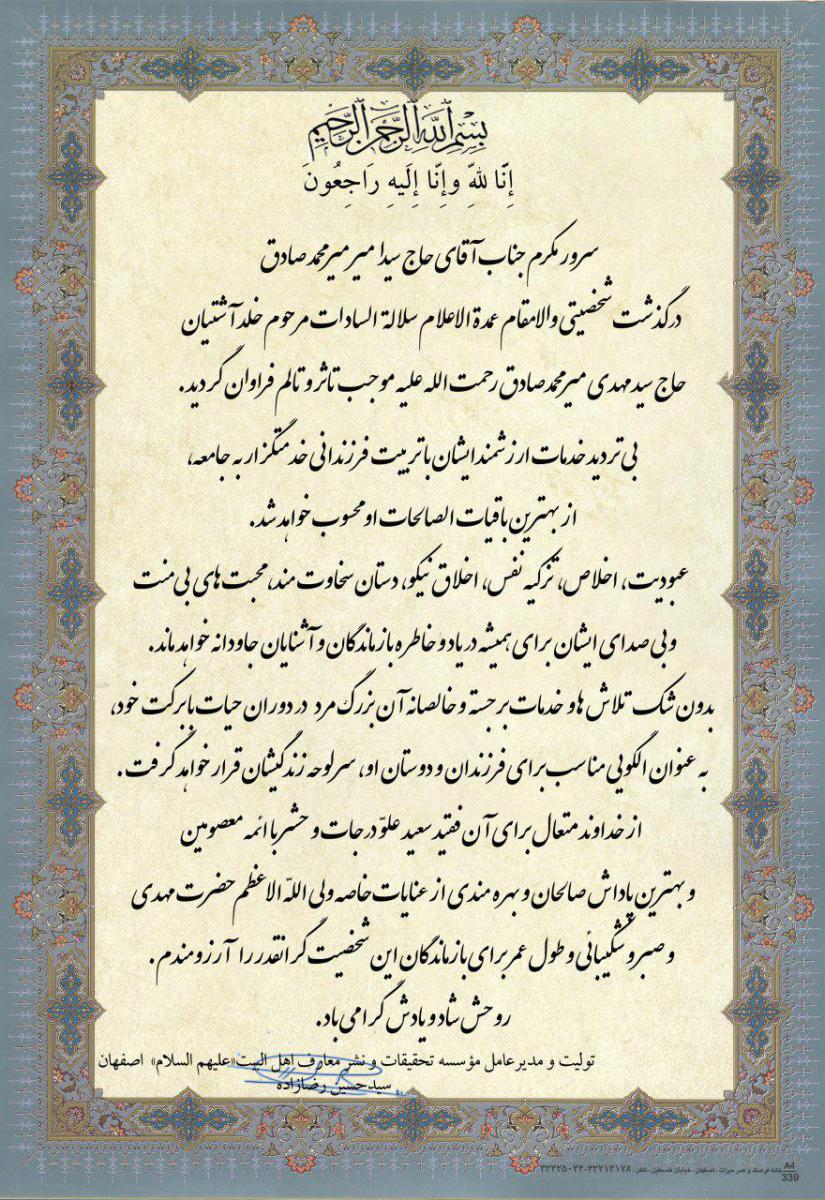 بِسْمِ اللَّهِ الرَّحْمَنِ الرَّحِيمِ
إِنَّا لِلّٰهِ وإِنَّا إِلَيهِ رَاجِعُونَ
سرور مکرم جناب آقای حاج سید امیر میرمحمدصادق
درگذشت شخصیتی والامقام عمدة الاعلام سلالة السادات مرحوم خلد آشتیان
حاج سید مهدی میرمحمدصادق رحمت الله علیه موجب تاثر و تالم فراوان گردید.
بی تردید خدمات ارزشمند ایشان با تربیت فرزندانی خدمتگزار به جامعه،
از بهترین باقیات الصالحات او محسوب خواهد شد.
عبودیت، اخلاص، تزکیه نفس، اخلاق نیکو، دستان سخاوت مند، محبت های بی منت
و بی صدای ایشان برای همیشه در یاد و خاطره بازماندگان و آشنایان جاودانه خواهد ماند.
بدون شک تلاش ها و خدمات برجسته و خالصانه آن بزرگ مرد در دوران حیات بابرکت خود،
به عنوان الگویی مناسب برای فرزندان و دوستان او، سرلوحه زندگیشان قرار خواهد گرفت.
از خداوند متعال برای آن فقید سعید علوّ درجات و حشر با ائمه معصومین
و بهترین پاداش صالحان و بهره مندی از عنایات خاصه ولی اللّه الاعظم حضرت مهدی
و صبر و شکیبائی و طول عمر برای بازماندگان این شخصیت گرانقدر را آرزومندم.
روحش شاد و یادش گرامی باد.
تولیت و مدیرعامل مؤسسه تحقیقات و نشر معارف اهل البیت«علیهم السلام» اصفهان
سیدحسین رضازاده
A4
خانه فرهنگ و هنر میراث - اصفهان - خیابان فلسطین - تلفن: ۳۲۲۱۳۱۷۸-۳۲۲۲۵۰۲۲
339